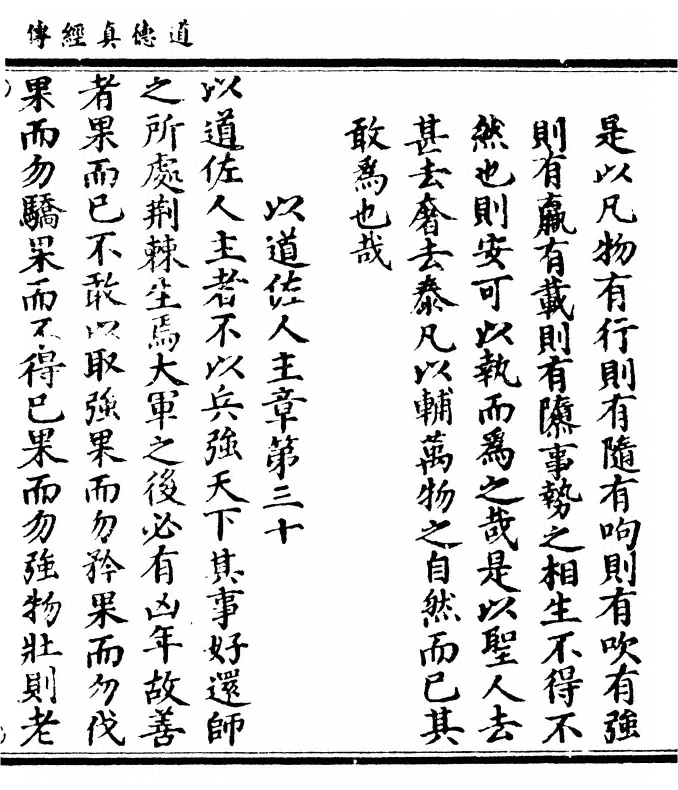 道德真經傳
是以凡物有行則有隨有呴則有吹有強
則有羸有載則有隳事勢之相生不得不
然也則安可以執而爲之哉是以聖人去
甚去奢去泰凡以輔萬物之自然而已其
敢爲也哉
以道佐人主章第三十
以道佐人主者不以兵強天下其事好還師
之所處荆棘生焉大軍之後必有凶年故善
者果而已不敢以取強果而勿矜果而勿伐
果而勿驕果而不得已果而勿強物壯則老